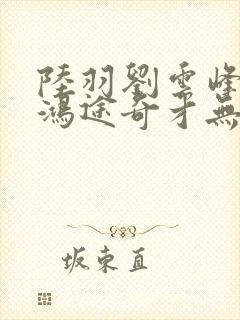 陸羽劉雲峰
鴻途奇才無
坂東直